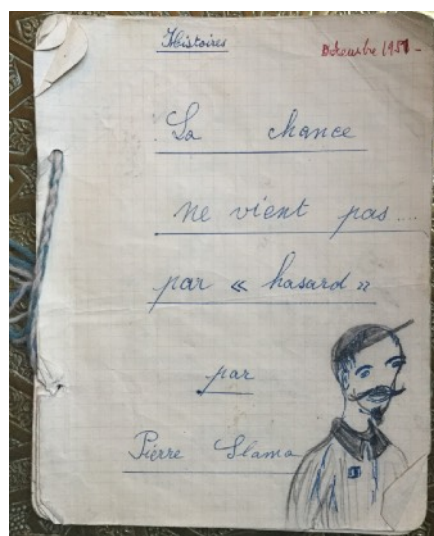 Histoires
Décembre 1951 -
La chance
ne vient pas....
par « hasard »
par
Pierre Slama